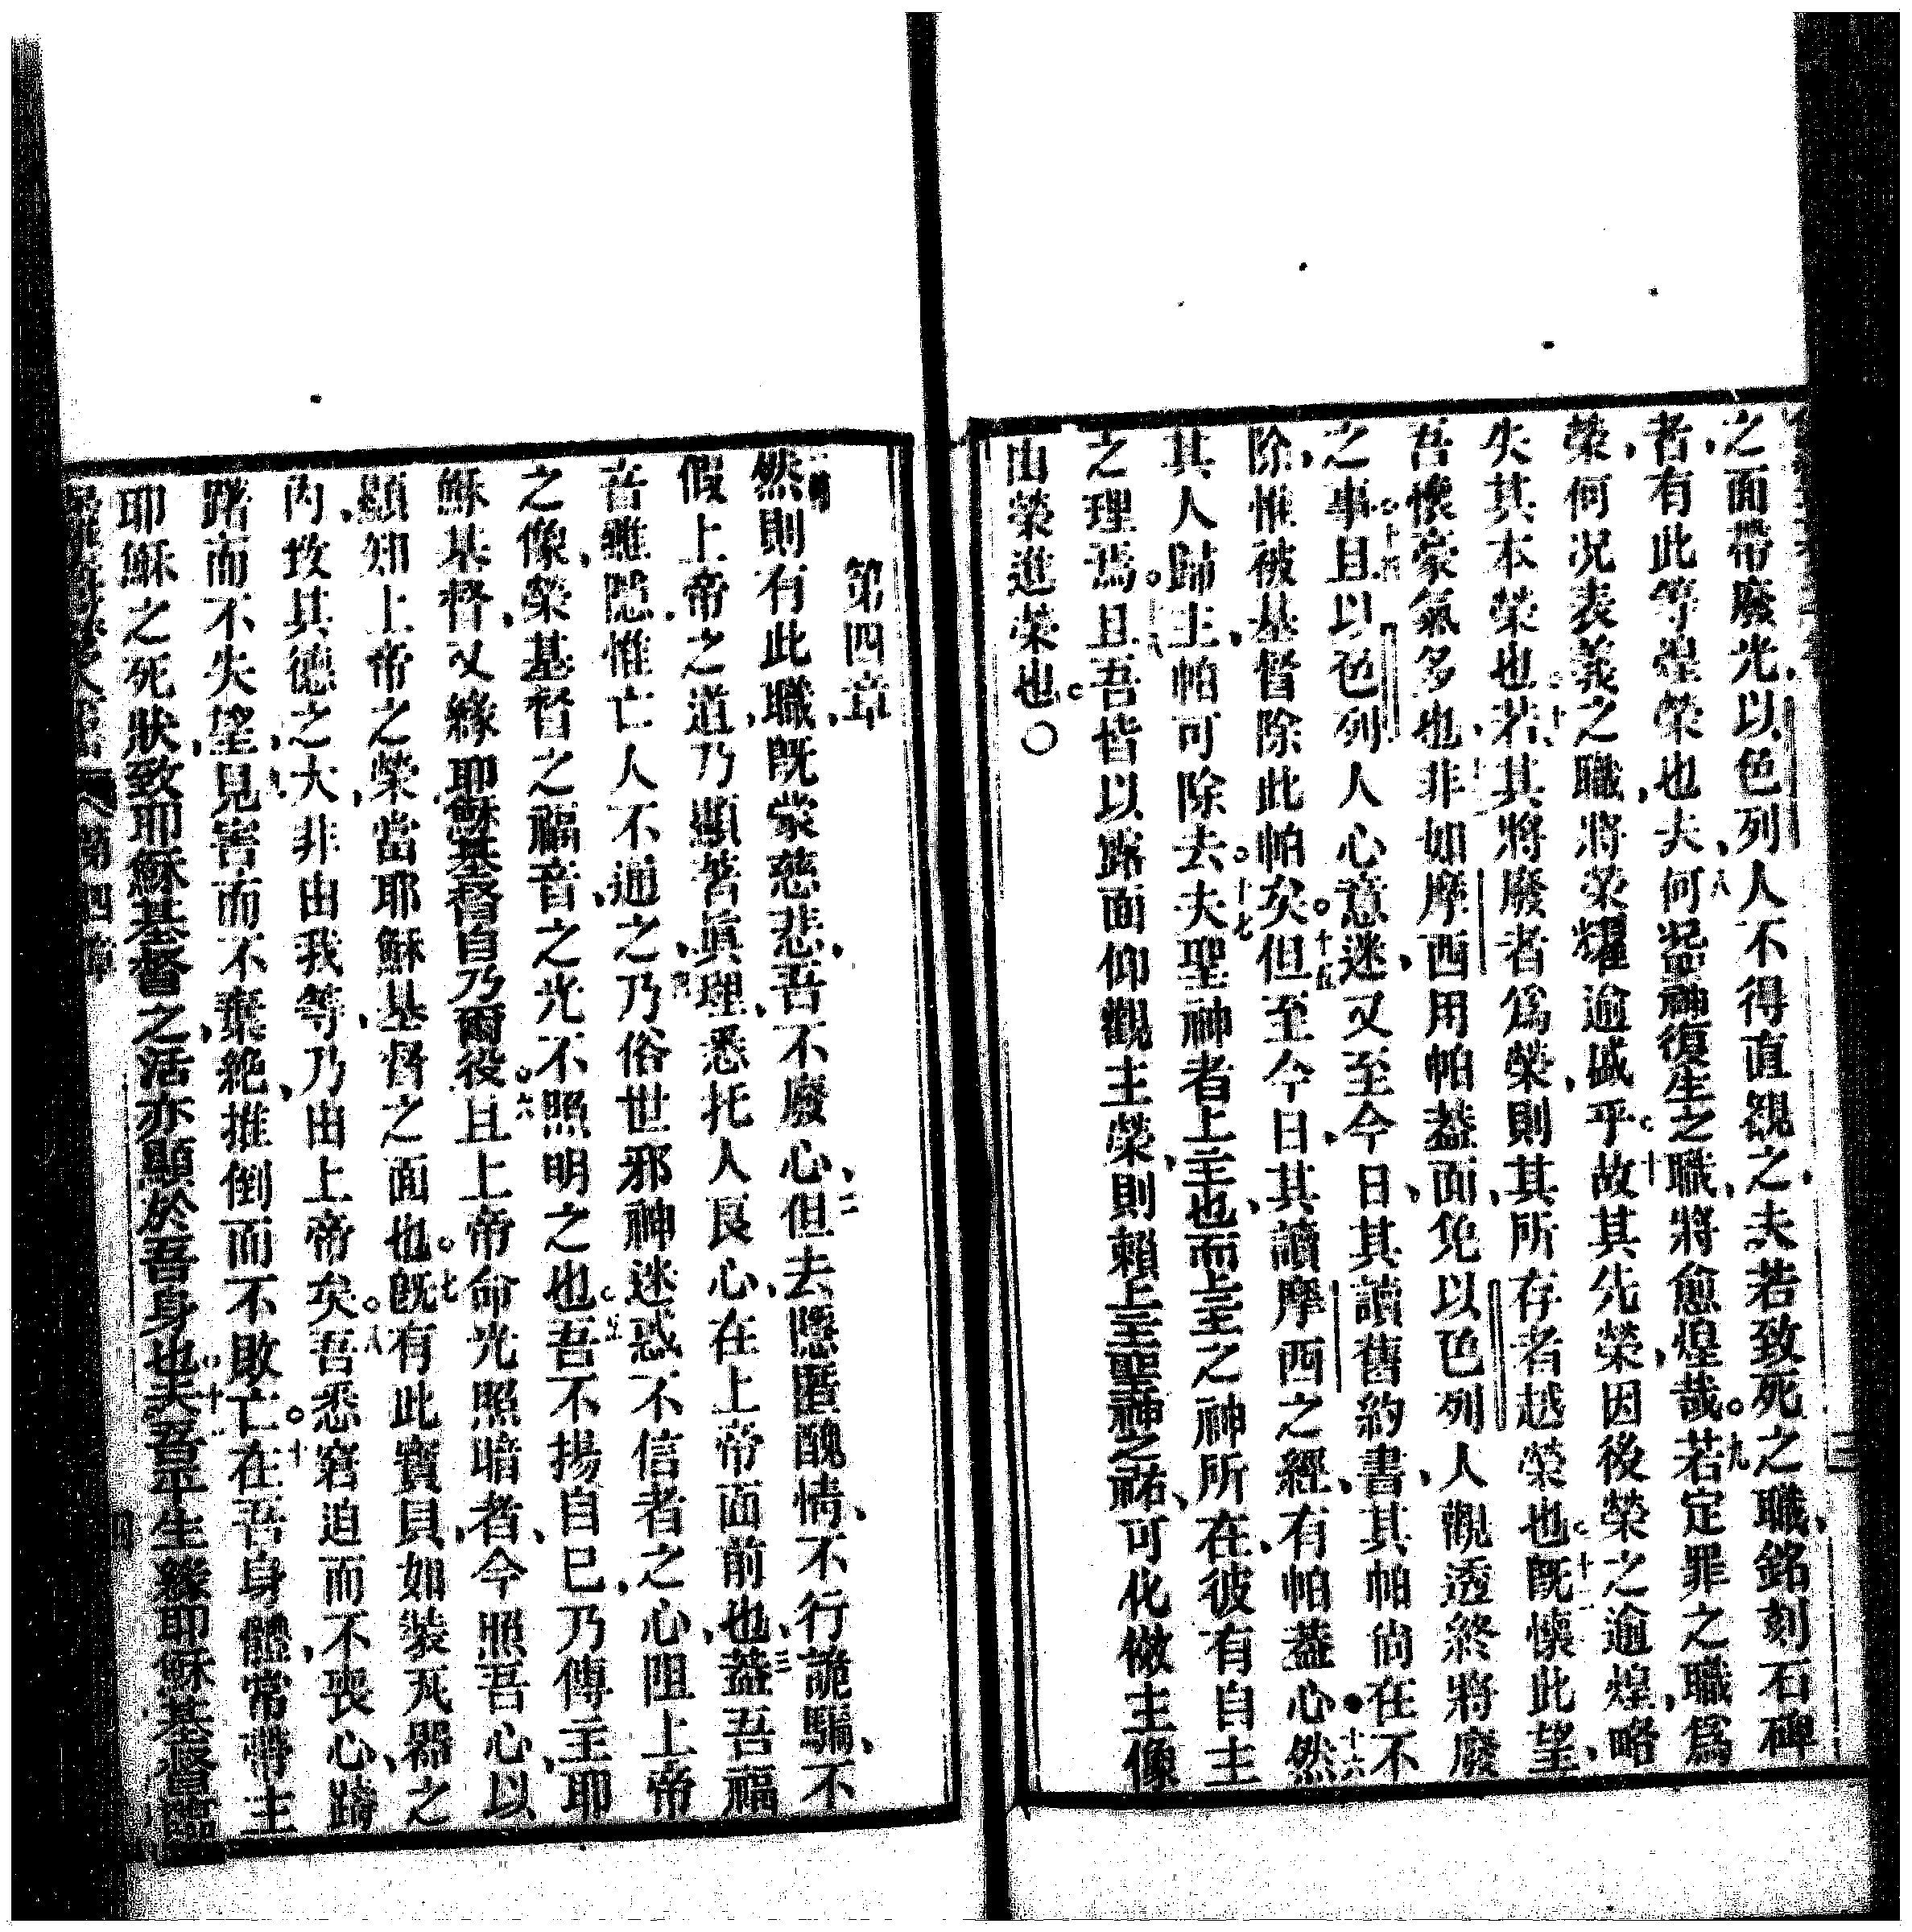 之面帶廢光以色列人不得直覩之夫若致死之職銘刻石碑
者有此等煌榮也夫何況神復生之職將愈煌哉若定罪之職爲
榮何况表義之職將榮耀逾盛乎故其先榮因後榮之逾煌略
失其本榮也若其將廢者爲榮則其所存者越榮也旣懷此望
吾懷豪氣多也非如摩西用帕葢面免以色列人觀透終將廢
之事且以色列人心意迷又至今日其讀舊約書其帕尙在不
除惟被基督除此帕矣但至今日其讀摩西之經有帕葢心然
其人歸主帕可除去夫聖神者上主也而上主之神所在彼有自主
之理焉且吾皆以露面仰觀主榮則賴上主聖神之祐可化倣主像
由榮進榮也〇
第四章
然則有此職旣蒙慈悲吾不廢心但去隱匿醜情不行詭騙不
假上帝之道乃顯著眞理悉托人良心在上帝面前也葢吾福
音雖隱惟亡人不通之乃俗世邪神迷惑不信者之心阻上帝
之像榮基督之福音之光不照明之也吾不揚自己乃傳主耶
穌基督又緣耶穌基督自乃爾役且上帝命光照暗者今照吾心以
顯知上帝之榮當耶穌基督之面也旣有此寶貝如裝瓦器之
內致其德之大非由我等乃由上帝矣吾悉窘迫而不喪心躊
躇而不失望見害而不棄絶推倒而不敗亡在吾身體常帶主
耶穌之死狀致耶穌基督之活亦顯於吾身也夫吾平生緣耶穌基督臨
第四章